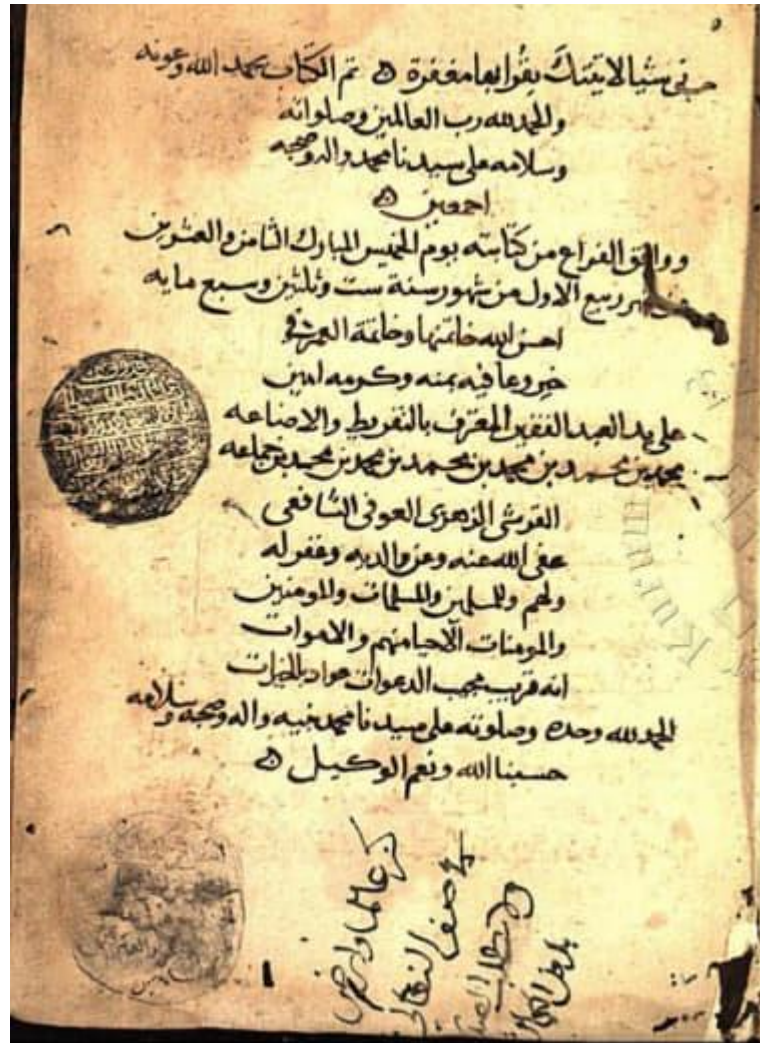 شيا لا يتيك بقرابها مغفرة ۞ تم الكتاب بحمد الله وعونه
والحمد لله رب العالمين وصلواته
وسلامه على سيدنا محمد واله وصحبه
اجمعين ۞
ووافق الفراغ من كتابته يوم الخميس المبارك الثامن والعشرين
ربيع الاول من شهور سنة ست وثلثين وسبع مايه
احسن الله خاتمتها وخاتمة العمر في
خير وعافيه بمنه وكرمه امين
على يد العبد الفقير المعترف بالتفريط والاضاعه
محمد بن محمد بن محمد بن محمد بن محمد بن محمد بن جماعه
القرشي الزهري العوفي الشافعي
عفى الله عنه وعن والديه وغفر له
ولهم وللمسلمين والمسلمات والمومنين
والمومنات الاحيا منهم والاموات
انه قريب مجيب الدعوات جواد بالخيرات
الحمد لله وحده وصلوته على سيدنا محمد نبيه واله وصحبه وسلامه
حسبنا الله ونعم الوكيل ۞
كن عالما وارض
بصف النعال